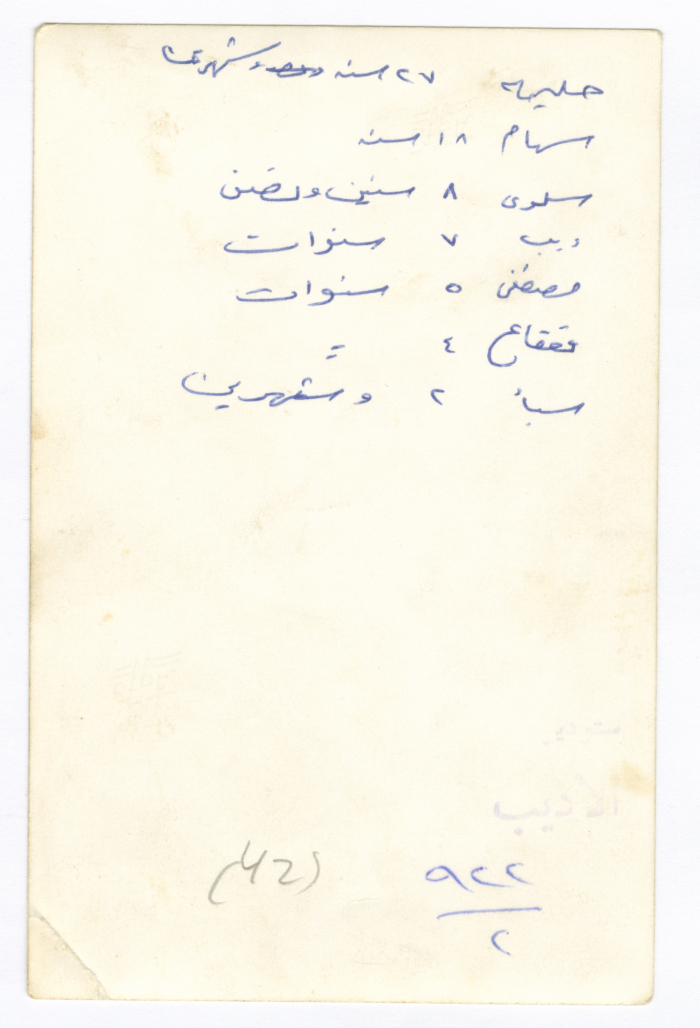 حليمه ٢٧ سنه وشهرين
سهام ١٨ سنه
سلوى ٨ سنين ونصف
ديب ٧ سنوات
مصطفى ٥ سنوات
قعقاع ٤ =
سبأ ٢ وشهرين
ستوديو
الأديب
(42)
٩٢٢
٢